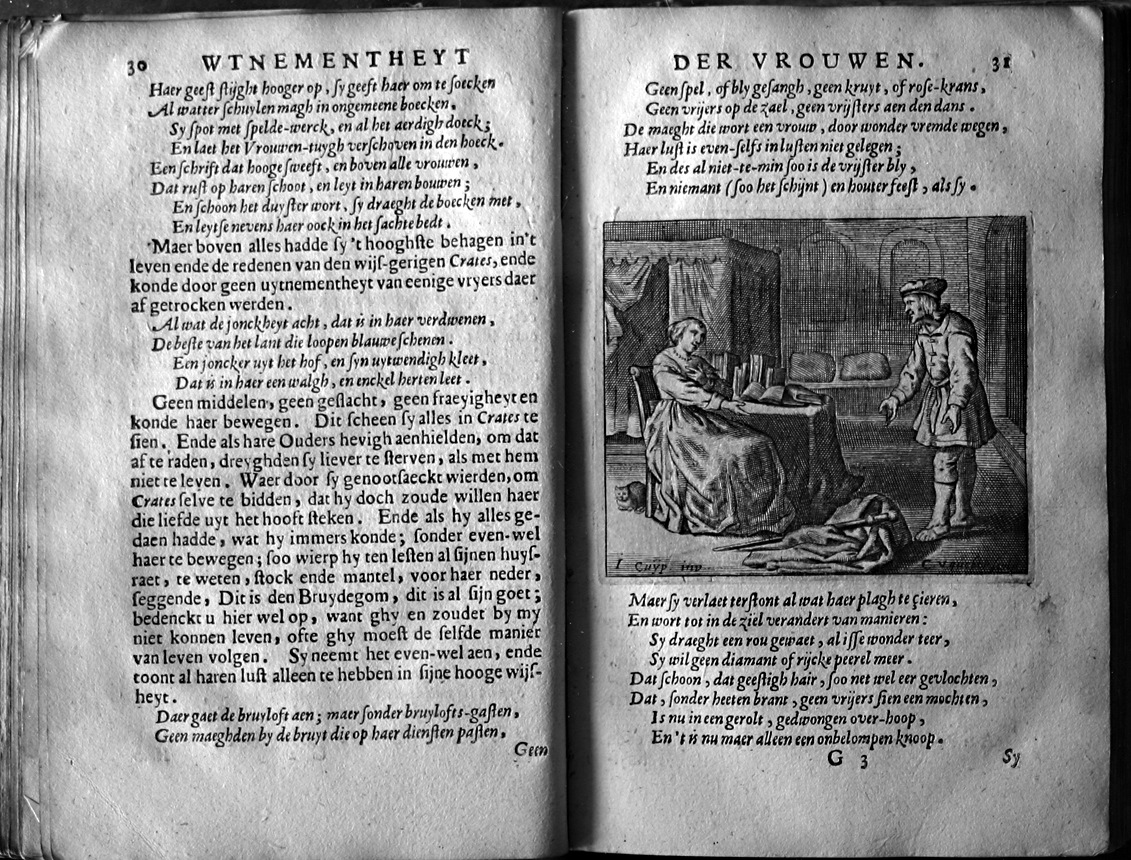 30 WTNEMENTHEYT
Haer geeſt ſtijght hooger op, ſy geeft haer om te ſoecken
Al watter ſchuylen magh in ongemeene boecken.
Sy ſpot met ſpelde-werck, en al het aerdigh doeck;
En laet het Vrouwen-tuygh verſchoven in den hoeck.
Een ſchrift dat hooge ſweeft, en boven alle vrouwen,
Dat ruſt op haren ſchoot, en leyt in haren bouwen;
En ſchoon het duyſter wort, ſy draeght de boecken met,
En leytſe nevens haer oock in het ſachte bedt.
Maer boven alles hadde ſy 't hooghſte behagen in't
leven ende de redenen van den wijſ-gerigen Crates, ende
konde door geen uytnementheyt van eenige vryers daer
af getrocken werden.
Al wat de jonckheyt acht, dat is in haer verdwenen,
De beſte van het lant die loopen blauwe ſchenen.
Een joncker uyt het hof, en ſyn uytwendigh kleet,
Dat is in haer een walgh, en enckel herten leet.
Geen middelen, geen geſlacht, geen fraeyigheyt en
konde haer bewegen. Dit ſcheen ſy alles in Crates te
ſien. Ende als hare Ouders hevigh aenhielden, om dat
af te raden, dreyghden ſy liever te ſterven, als met hem
niet te leven. Waer door ſy genootſaeckt wierden, om
Crates ſelve te bidden, dat hy doch zoude willen haer
die liefde uyt het hooft ſteken. Ende als hy alles ge-
daen hadde, wat hy immers konde; ſonder even-wel
haer te bewegen; ſoo wierp hy ten leſten al ſijnen huyſ-
raet, te weten, ſtock ende mantel, voor haer neder,
ſeggende, Dit is den Bruydegom, dit is al ſijn goet;
bedenckt u hier wel op, want ghy en zoudet by my
niet konnen leven, ofte ghy moeſt de ſelfde manier
van leven volgen. Sy neemt het even-wel aen, ende
toont al haren luſt alleen te hebben in ſijne hooge wijſ-
heyt.
Daer gaet de bruyloft aen; maer ſonder bruylofts-gaſten,
Geen maeghden by de bruyt die op haer dienſten paſten,
Geen
DER VROUWEN. 31
Geen ſpel, of bly geſangh, geen kruyt, of roſe-krans,
Geen vrijers op de zael, geen vrijſters aen den dans.
De maeght die wort een vrouw, door wonder vremde wegen,
Haer luſt is even-ſelfs in luſten niet gelegen;
En des al niet-te-min ſoo is de vrijſter bly,
En niemant (ſoo het ſchijnt) en houter feeſt, als ſy.
I Cuÿp inv.
Maer ſy verlaet terſtont al wat haer plagh te çieren,
En wort tot in de ziel verandert van manieren:
Sy draeght een rou gewaet, al iſſe wonder teer,
Sy wil geen diamant of rijcke peerel meer.
Dat ſchoon, dat geeſtigh hair, ſoo net wel eer gevlochten,
Dat, ſonder heeten brant, geen vrijers ſien een mochten,
Is nu in een gerolt, gedwongen over-hoop,
En 't is nu maer alleen een onbelompen knoop.
G 3 Sy